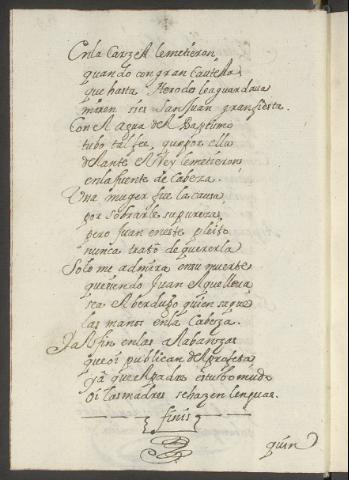 Enla Carzel lemetieron
quando con gran Cautela
que hasta Herodes leaguardaua
miren sies San Juan gran fiesta.
Con el agua del Baptismo
tubo tal fee, que por ella
delante el Rey lemetieron
enla fuente de Cabeza.
Una muger fue la causa
por sobrarle supureza
pero Juan eneste pleito
nunca trató de querella
Solo me admira ensu muerte
queriendo Juan
sea el berdugo quien
las manos enla Cabeza.
Y al fin enlas alabanzas
que oi publican del profeta
ya que el padre estubo mudo
oi las madres se hazen lenguas.
finis
quin